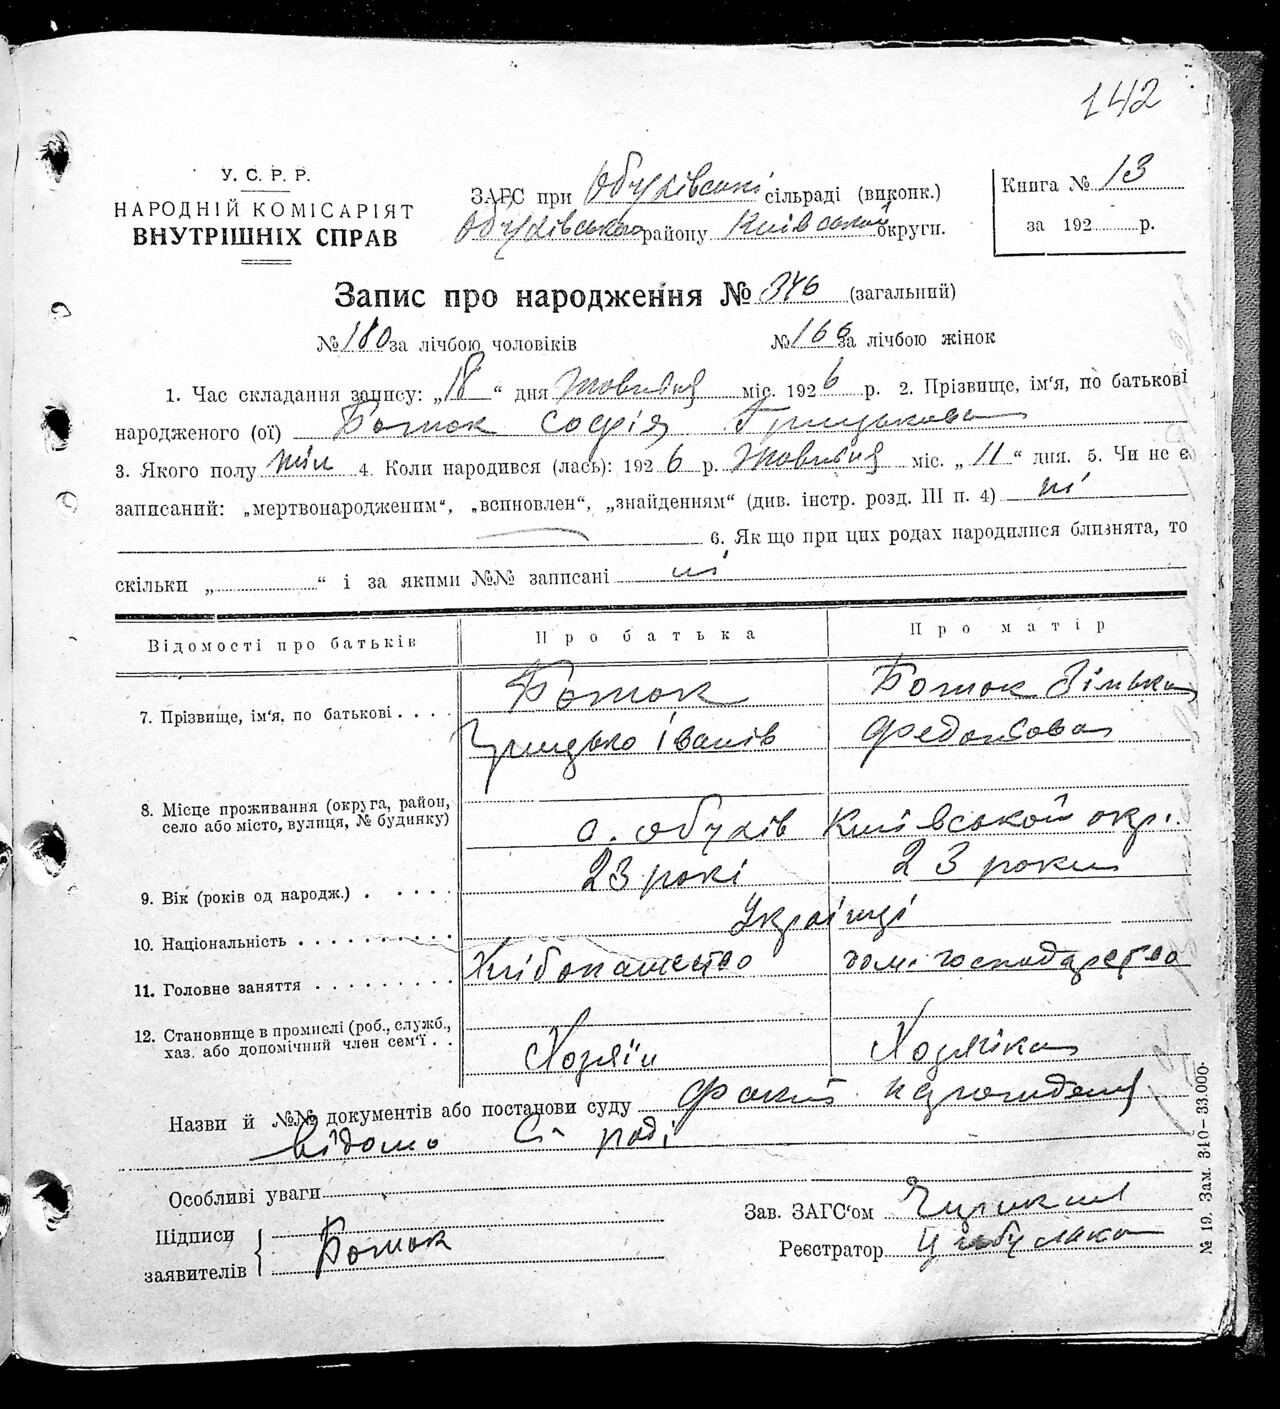 142
У. С. Р. Р.
НАРОДНІЙ КОМІСАРІЯТ
ВНУТРІШНІХ СПРАВ
ЗАГС при Обухівські сільраді (виконк.)
Обухівського району Київської округи.
Книга № 13
за 192 р.
Запис про народження № 346 (загальний)
№ 180 за лічбою чоловіків № 166 за лічбою жінок
1. Час складання запису: „18“ дня Жовтня міс. 1926 р. 2. Прізвище, ім'я, по батькові
народженого (ої) Ботюк Софія Грицькова
3. Якого полу жін 4. Коли народився (лась): 1926 р. Жовтня міс. „11“ дня. 5. Чи не є
записаний: „мертвонародженим“, „всиновлен“, „знайденням“ (див. інстр. розд. III п. 4) ні
6. Якщо при цих родах народилися близнята, то
скільки „ “ і за якими №№ записані ні
Відомості про батьків Про батька Про матір
7. Прізвище, ім'я, по батькові . . . . Ботюк Ботюк Зінька
Грицько Іванів Федосова
8. Місце проживання (округа, район,
село або місто, вулиця, № будинку) с. Обухів Київської окр.
9. Вік (років од народж.) . . . . . 23 рокі 23 роки
10. Національність . . . . . . . . . . Українці
11. Головне заняття . . . . . . . . . Хлібопашество дом. господарство
12. Становище в промислі (роб., служб.,
хаз. або допомічний член сем'ї . . Хозяїн Хозяйка
Назви й №№ документів або постанови суду Факт народження
відомо С. раді
Особливі уваги
Зав. ЗАГС'ом
Підписи
заявителів Ботюк
Реєстратор Цибулько
№ 19. Зам. 340—33.000.